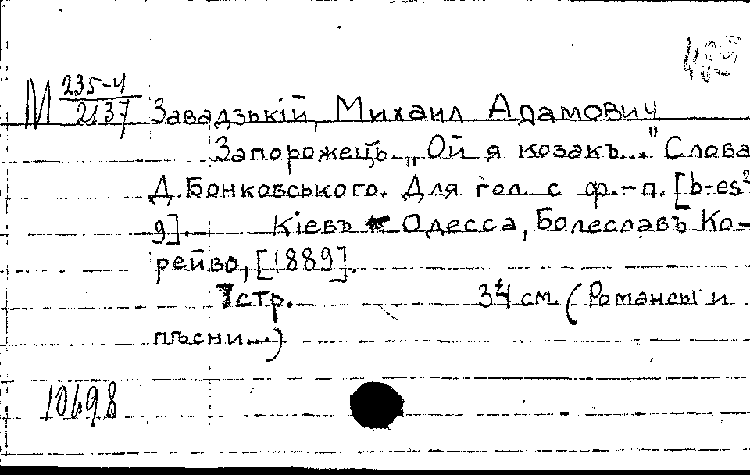 М 235-4
2137
Завадзькій, Михаил Адамович
Запорожець. „Ой я козакъ..." Слова
Д. Бонковського. Для гол. с ф.-п. [b-es²
g]. Кіевъ Одесса, Болеславъ Ко-
рейво, [1889].
7 стр. 34 см. (Романсы и
пѣсни...)
10698